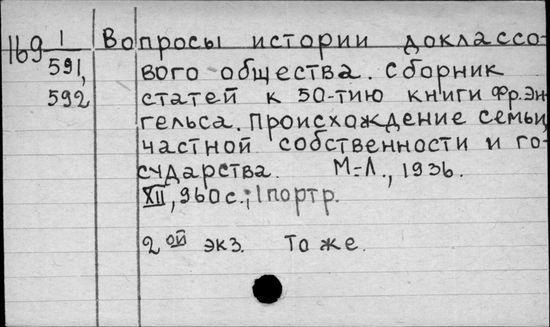 169 1/591, 592 Вопросы истории доклассо-
вого общества. Сборник
статей к 50-тию книги Фр. Эн-
гельса. Происхождение семьи,
частной собственности и го-
сударства. М.-Л., 1936.
XII, 960 с.; 1 портр.
2ой экз. То же.